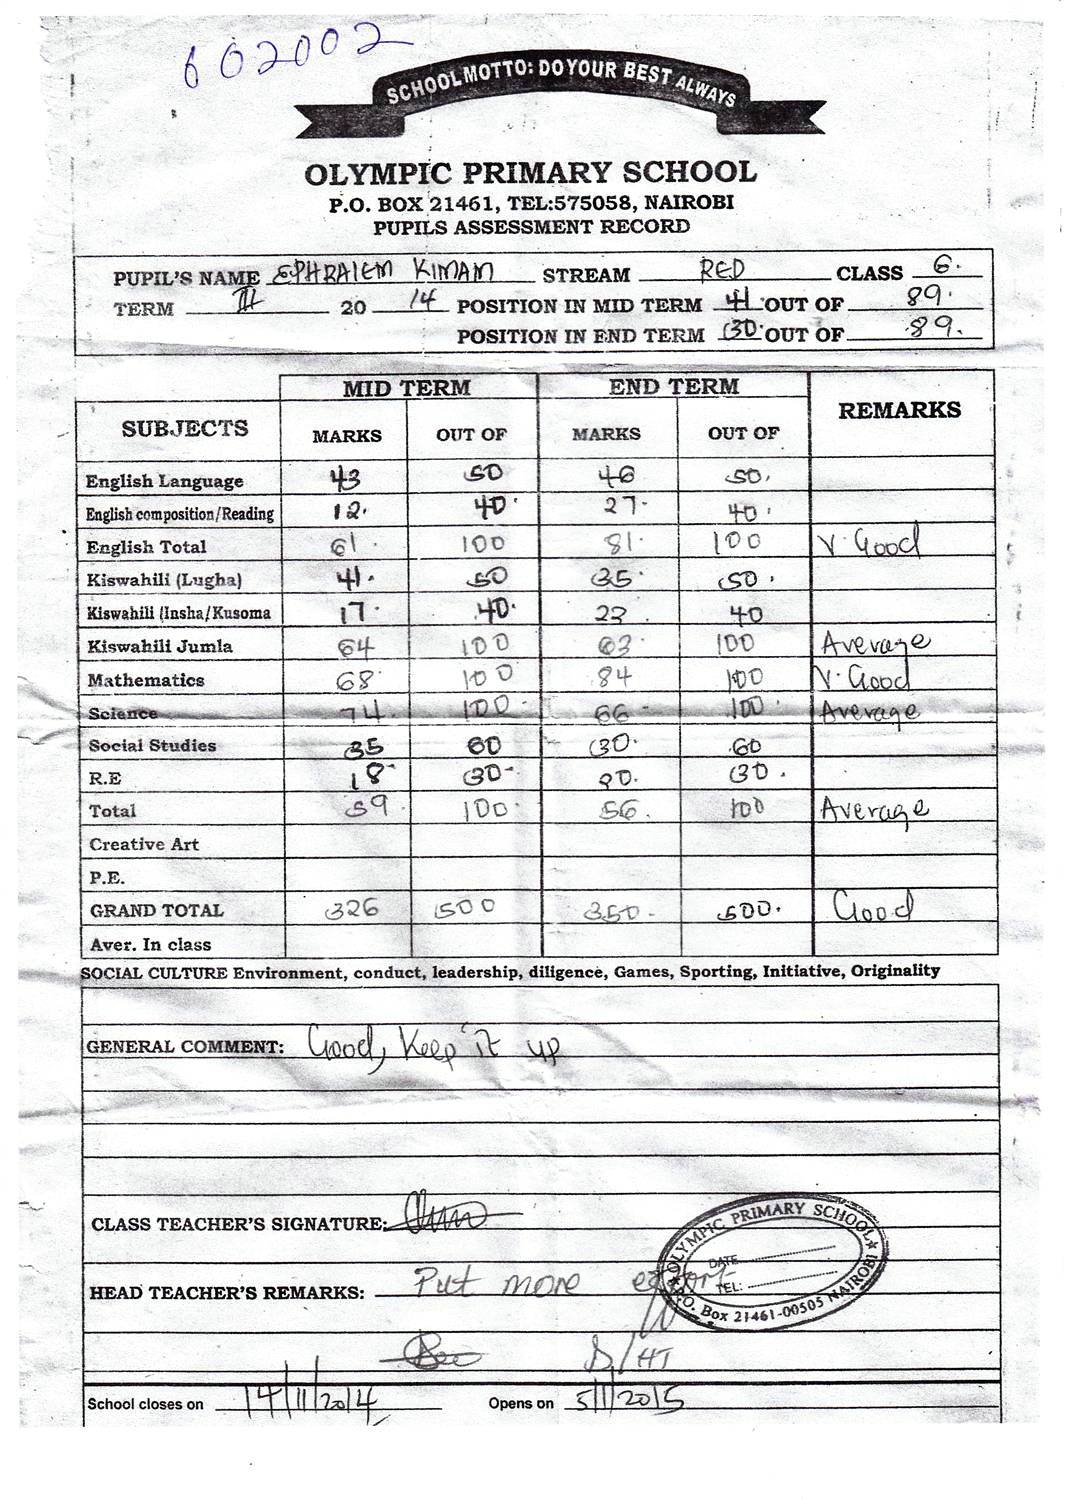 602002
SCHOOL MOTTO: DO YOUR BEST ALWAYS
OLYMPIC PRIMARY SCHOOL
P.O. BOX 21461, TEL:575058, NAIROBI
PUPILS ASSESSMENT RECORD
PUPIL'S NAME EPHRAIEM KIMANI STREAM RED CLASS 6.
TERM III 20 14 POSITION IN MID TERM 41 OUT OF 89.
POSITION IN END TERM 30. OUT OF 89.
MID TERM END TERM
SUBJECTS MARKS OUT OF MARKS OUT OF REMARKS
English Language 43 50 46 50.
English composition/Reading 12. 40. 27. 40.
English Total 61. 100 81. 100 V. Good
Kiswahili (Lugha) 41. 50 35. 50.
Kiswahili (Insha/Kusoma 17. 40. 22 40
Kiswahili Jumla 64 100 63. 100 Average
Mathematics 68. 100 84 100 V. Good
Science 74. 100. 66 100. Average
Social Studies 35 60 30. 60
R.E 18 30 20. 30.
Total 59. 100. 56. 100 Average
Creative Art
P.E.
GRAND TOTAL 326 500 350 500. Good
Aver. In class
SOCIAL CULTURE Environment, conduct, leadership, diligence, Games, Sporting, Initiative, Originality
GENERAL COMMENT: Good, Keep it up
CLASS TEACHER'S SIGNATURE:
OLYMPIC PRIMARY SCHOOL
DATE
TEL:
P.O. Box 21461-00505 NAIROBI
HEAD TEACHER'S REMARKS: Put more effort
D/HT
School closes on 14/11/2014 Opens on 5/1/2015